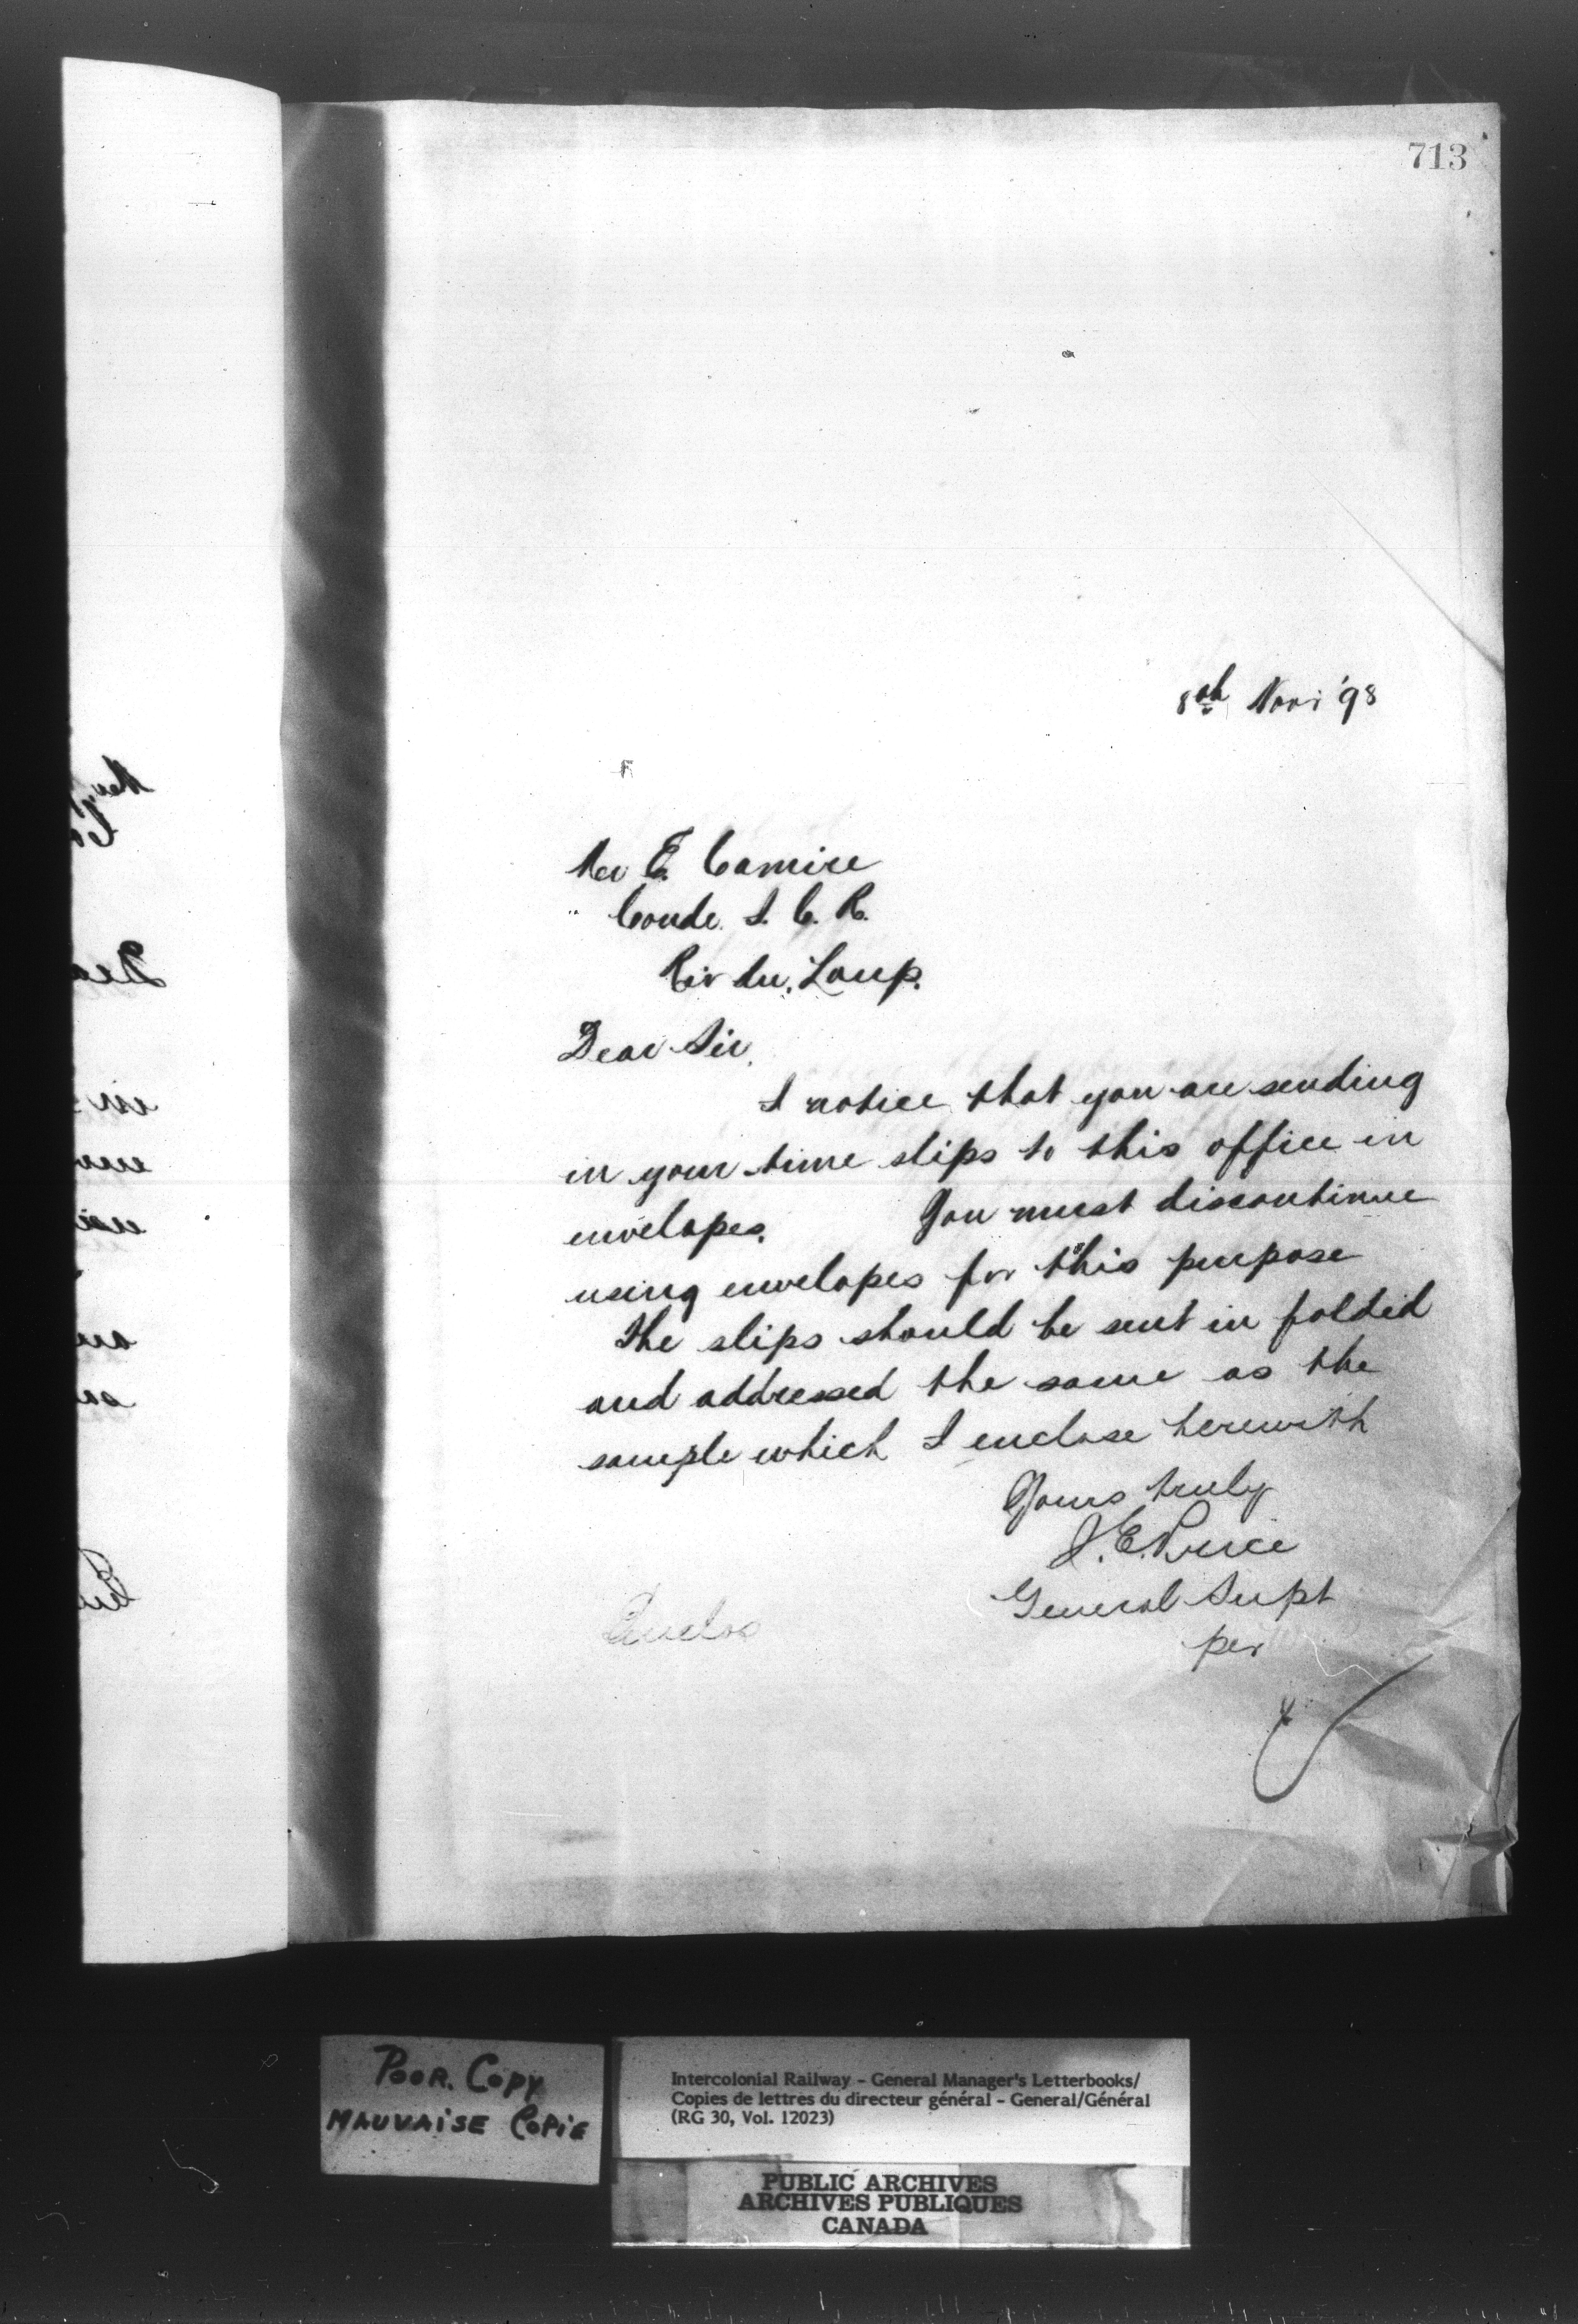 713
8th Nov '98
Mr E. Camire
Condr. I. C. R.
Riv du. Loup.
Dear Sir,
I notice that you are sending
in your time slips to this office in
envelopes. You must discontinue
using envelopes for this purpose
The slips should be sent in folded
and addressed the same as the
sample which I enclose herewith
Yours truly
J. E. Price
General Supt
per
Enclos
POOR. COPY
MAUVAISE COPIE
Intercolonial Railway - General Manager's Letterbooks/
Copies de lettres du directeur général - General/Général
(RG 30, Vol. 12023)
PUBLIC ARCHIVES
ARCHIVES PUBLIQUES
CANADA